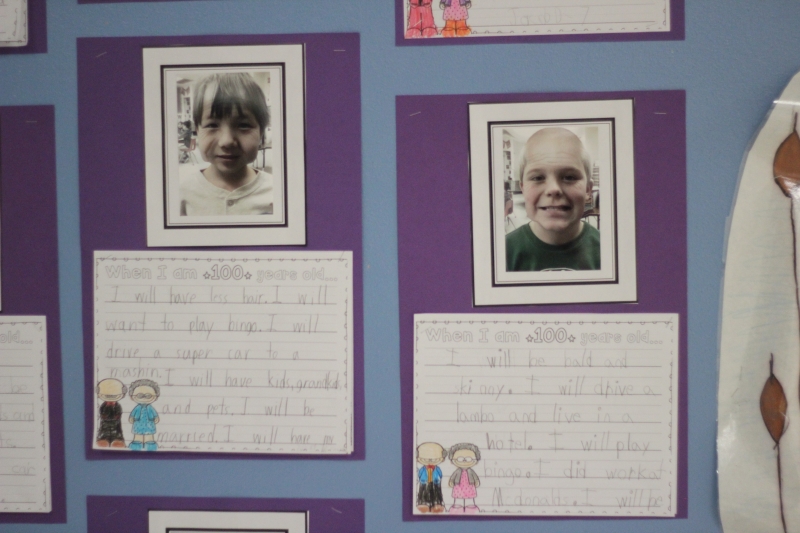 When I am 100 years old...
I will have less hair. I will
want to play bingo. I will
drive a super car to a
I will have kids,
and pets. I will be
married. I will have
When I am 100 years old...
I will be bald and
skinny. I will drive a
lambo and live in a
hotel. I will play
bingo. I did work at
Mcdonalds. I will be
old...
be
and
car